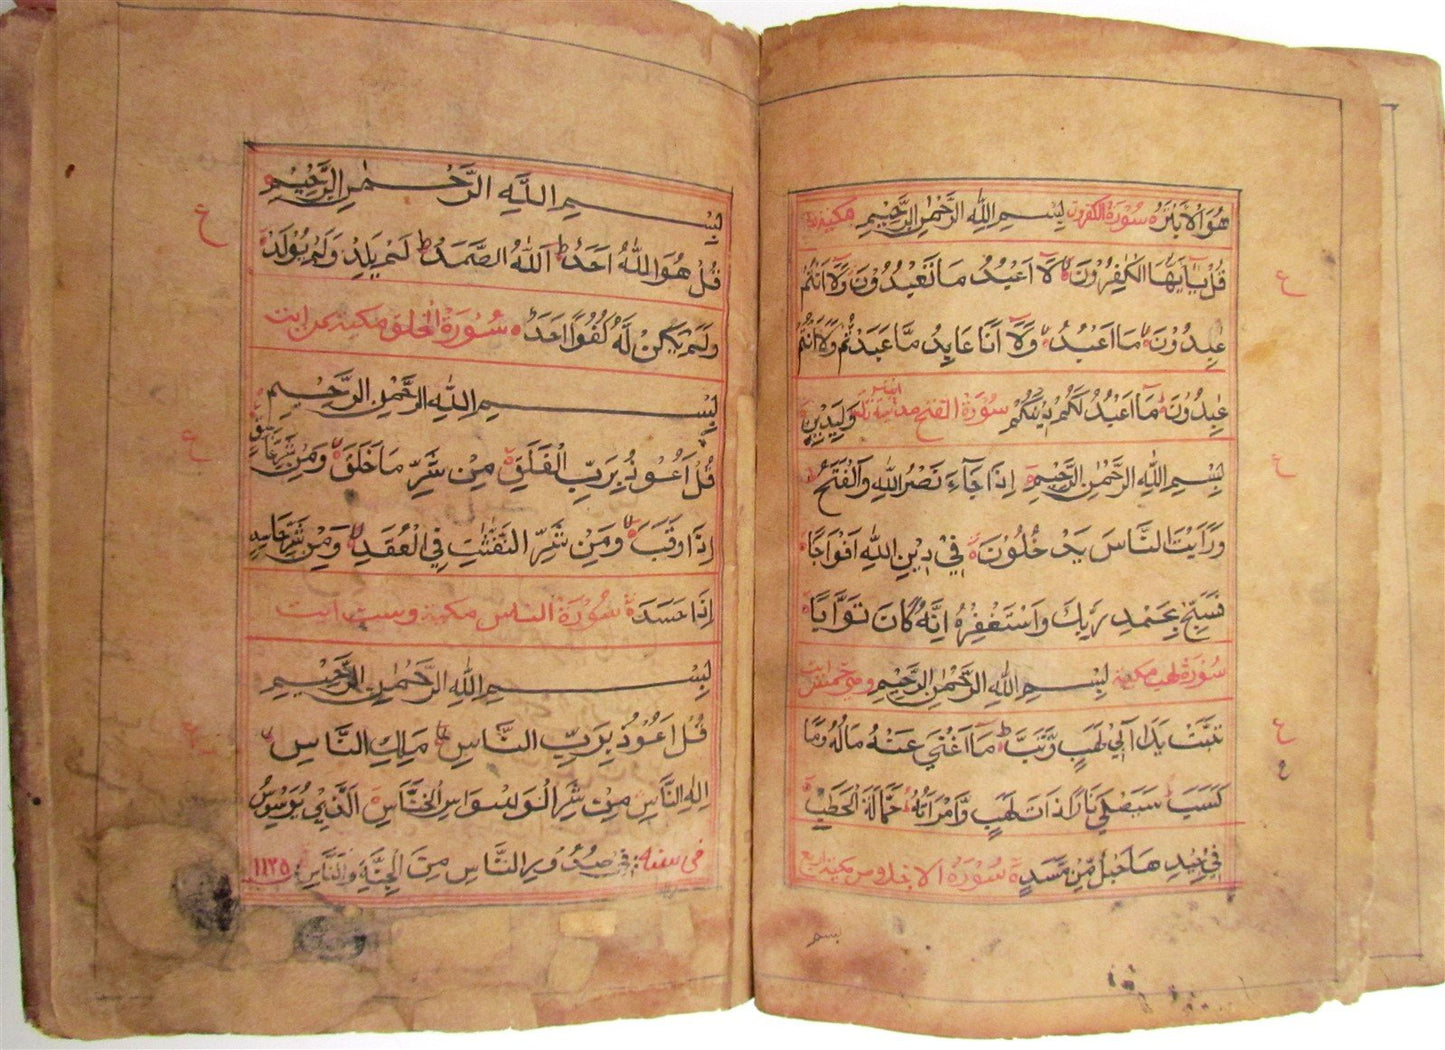 هُوَ الْاَبْتَرُ سُوْرَةُ الكفرون بِسْمِ اللّٰهِ الرَّحْمٰنِ الرَّحِيْمِ مكية
قُلْ يٰٓاَيُّهَا الْكٰفِرُوْنَ لَآ اَعْبُدُ مَا تَعْبُدُوْنَ وَلَآ اَنْتُمْ
عٰبِدُوْنَ مَآ اَعْبُدُ وَلَآ اَنَا عَابِدٌ مَّا عَبَدْتُّمْ وَلَآ اَنْتُمْ
عٰبِدُوْنَ مَآ اَعْبُدُ لَكُمْ دِيْنُكُمْ سُوْرَةُ الفتح مدنية وَلِيَ دِيْنِ
بِسْمِ اللّٰهِ الرَّحْمٰنِ الرَّحِيْمِ اِذَا جَآءَ نَصْرُ اللّٰهِ وَالْفَتْحُ
وَرَاَيْتَ النَّاسَ يَدْخُلُوْنَ فِيْ دِيْنِ اللّٰهِ اَفْوَاجًا
فَسَبِّحْ بِحَمْدِ رَبِّكَ وَاسْتَغْفِرْهُ اِنَّهُ كَانَ تَوَّابًا
سُوْرَةُ لهب مكية بِسْمِ اللّٰهِ الرَّحْمٰنِ الرَّحِيْمِ وهي خمس ايت
تَبَّتْ يَدَآ اَبِيْ لَهَبٍ وَّتَبَّ مَآ اَغْنٰى عَنْهُ مَالُهُ وَمَا
كَسَبَ سَيَصْلٰى نَارًا ذَاتَ لَهَبٍ وَّامْرَاَتُهُ حَمَّالَةَ الْحَطَبِ
فِيْ جِيْدِهَا حَبْلٌ مِّنْ مَّسَدٍ سُوْرَةُ الاخلاص مكية اربع
بسم
بِسْمِ اللّٰهِ الرَّحْمٰنِ الرَّحِيْمِ
قُلْ هُوَ اللّٰهُ اَحَدٌ اَللّٰهُ الصَّمَدُ لَمْ يَلِدْ وَلَمْ يُوْلَدْ
وَلَمْ يَكُنْ لَّهُ كُفُوًا اَحَدٌ سُوْرَةُ الخلق مكية خمس ايت
بِسْمِ اللّٰهِ الرَّحْمٰنِ الرَّحِيْمِ
قُلْ اَعُوْذُ بِرَبِّ الْفَلَقِ مِنْ شَرِّ مَا خَلَقَ وَمِنْ شَرِّ غَاسِقٍ
اِذَا وَقَبَ وَمِنْ شَرِّ النَّفّٰثٰتِ فِي الْعُقَدِ وَمِنْ شَرِّ حَاسِدٍ
اِذَا حَسَدَ سُوْرَةُ الناس مكية وست ايت
بِسْمِ اللّٰهِ الرَّحْمٰنِ الرَّحِيْمِ
قُلْ اَعُوْذُ بِرَبِّ النَّاسِ مَلِكِ النَّاسِ
اِلٰهِ النَّاسِ مِنْ شَرِّ الْوَسْوَاسِ الْخَنَّاسِ الَّذِيْ يُوَسْوِسُ
في سنه فِيْ صُدُوْرِ النَّاسِ مِنَ الْجِنَّةِ وَالنَّاسِ ١١٢٥